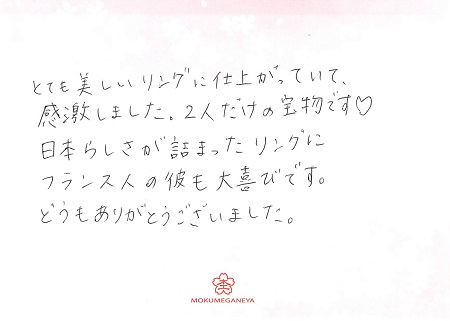 とても美しいリングに仕上がっていて、
感激しました。2人だけの宝物です♡
日本らしさが詰まったリングに
フランス人の彼も大喜びです。
どうもありがとうございました。
MOKUMEGANEYA